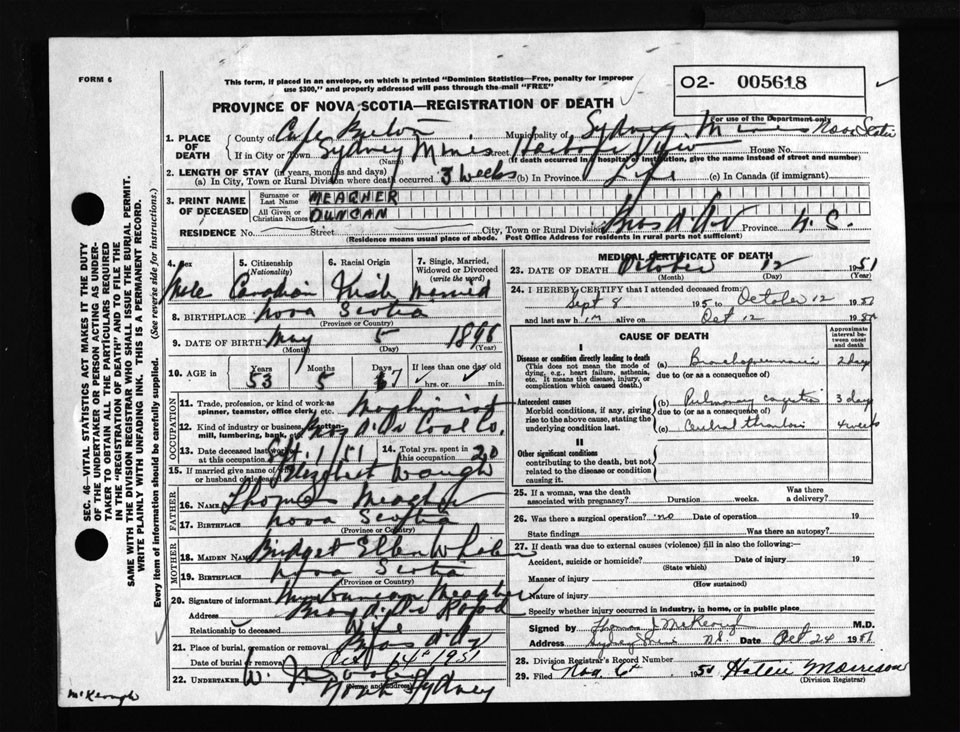 FORM 6
This form, if placed in an envelope, on which is printed "Dominion Statistics—Free, penalty for improper
use $300," and properly addressed will pass through the mail "FREE"
O2- 005618
PROVINCE OF NOVA SCOTIA—REGISTRATION OF DEATH
For use of the Department only
1. PLACE OF DEATH County of Cape Breton Municipality of Sydney Mines Nova Scotia
If in City or Town Sydney Mines Street Harbor View House No.
(If death occurred in hospital or institution, give the name instead of street and number)
2. LENGTH OF STAY (in years, months and days)
(a) In City, Town or Rural Division where death occurred 3 weeks (b) In Province Life (c) In Canada (if immigrant)
3. PRINT NAME OF DECEASED Surname or Last Name MEAGHER
All Given or Christian Names DUNCAN
RESIDENCE No. Street City, Town or Rural Division Bras d'Or Province N. S.
(Residence means usual place of abode. Post Office Address for residents in rural parts not sufficient)
4. Sex 5. Citizenship (Nationality) 6. Racial Origin 7. Single, Married, Widowed or Divorced (write the word)
Male Canadian Irish Married
8. BIRTHPLACE Nova Scotia
(Province or Country)
9. DATE OF BIRTH May 5 1898
(Month) (Day) (Year)
10. AGE in Years Months Days If less than one day old
53 5 7 hrs. or min.
OCCUPATION
11. Trade, profession, or kind of work as spinner, teamster, office clerk, etc. Machinist
12. Kind of industry or business, as cotton-mill, lumbering, bank, etc. Bras d'Or Coal Co.
13. Date deceased last worked at this occupation Sept 1/51 14. Total yrs. spent in this occupation 30
15. If married give name of wife or husband of deceased Elizabeth Waugh
FATHER
16. NAME Thomas Meagher
17. BIRTHPLACE Nova Scotia
(Province or Country)
MOTHER
18. MAIDEN NAME Bridget Ellen
19. BIRTHPLACE Nova Scotia
(Province or Country)
20. Signature of informant Mrs Duncan Meagher
Address Bras d'Or Road
Relationship to deceased Wife
21. Place of burial, cremation or removal Bras d'Or
Date of burial or removal Oct 14 1951
22. UNDERTAKER W. J.
(Name and address)
North Sydney
MEDICAL CERTIFICATE OF DEATH
23. DATE OF DEATH October 12 1951
(Month) (Day) (Year)
24. I HEREBY CERTIFY that I attended deceased from:
Sept 8 195 to October 12 1951
and last saw him alive on Oct 12 1951
CAUSE OF DEATH
Approximate interval between onset and death
I
Disease or condition directly leading to death
(This does not mean the mode of dying, e.g., heart failure, asthenia, etc. It means the disease, injury, or complication which caused death.)
(a) Bronchopneumonia 2 days
due to (or as a consequence of)
Antecedent causes
Morbid conditions, if any, giving rise to the above cause, stating the underlying condition last.
(b) Pulmonary congestion 3 days
due to (or as a consequence of)
(c) Cerebral thrombosis 4 weeks
II
Other significant conditions
contributing to the death, but not related to the disease or condition causing it.
25. If a woman, was the death associated with pregnancy? Duration weeks. Was there a delivery?
26. Was there a surgical operation? no Date of operation 19
State findings Was there an autopsy?
27. If death was due to external causes (violence) fill in also the following:
Accident, suicide or homicide? Date of injury 19
(State which)
Manner of injury
(How sustained)
Nature of injury
Specify whether injury occurred in industry, in home, or in public place
Signed by Thomas J. McKeough M.D.
Address Sydney Mines N.S. Date Oct 24 1951
28. Division Registrar's Record Number
29. Filed Nov. 6th 1951 Morrison
(Division Registrar)
SEC. 46—VITAL STATISTICS ACT MAKES IT THE DUTY
OF THE UNDERTAKER OR PERSON ACTING AS UNDER-
TAKER TO OBTAIN ALL THE PARTICULARS REQUIRED
IN THE "REGISTRATION OF DEATH" AND TO FILE THE
SAME WITH THE DIVISION REGISTRAR WHO SHALL ISSUE THE BURIAL PERMIT.
WRITE PLAINLY WITH UNFADING INK. THIS IS A PERMANENT RECORD.
Every item of information should be carefully supplied. (See reverse side for instructions.)
McKeough